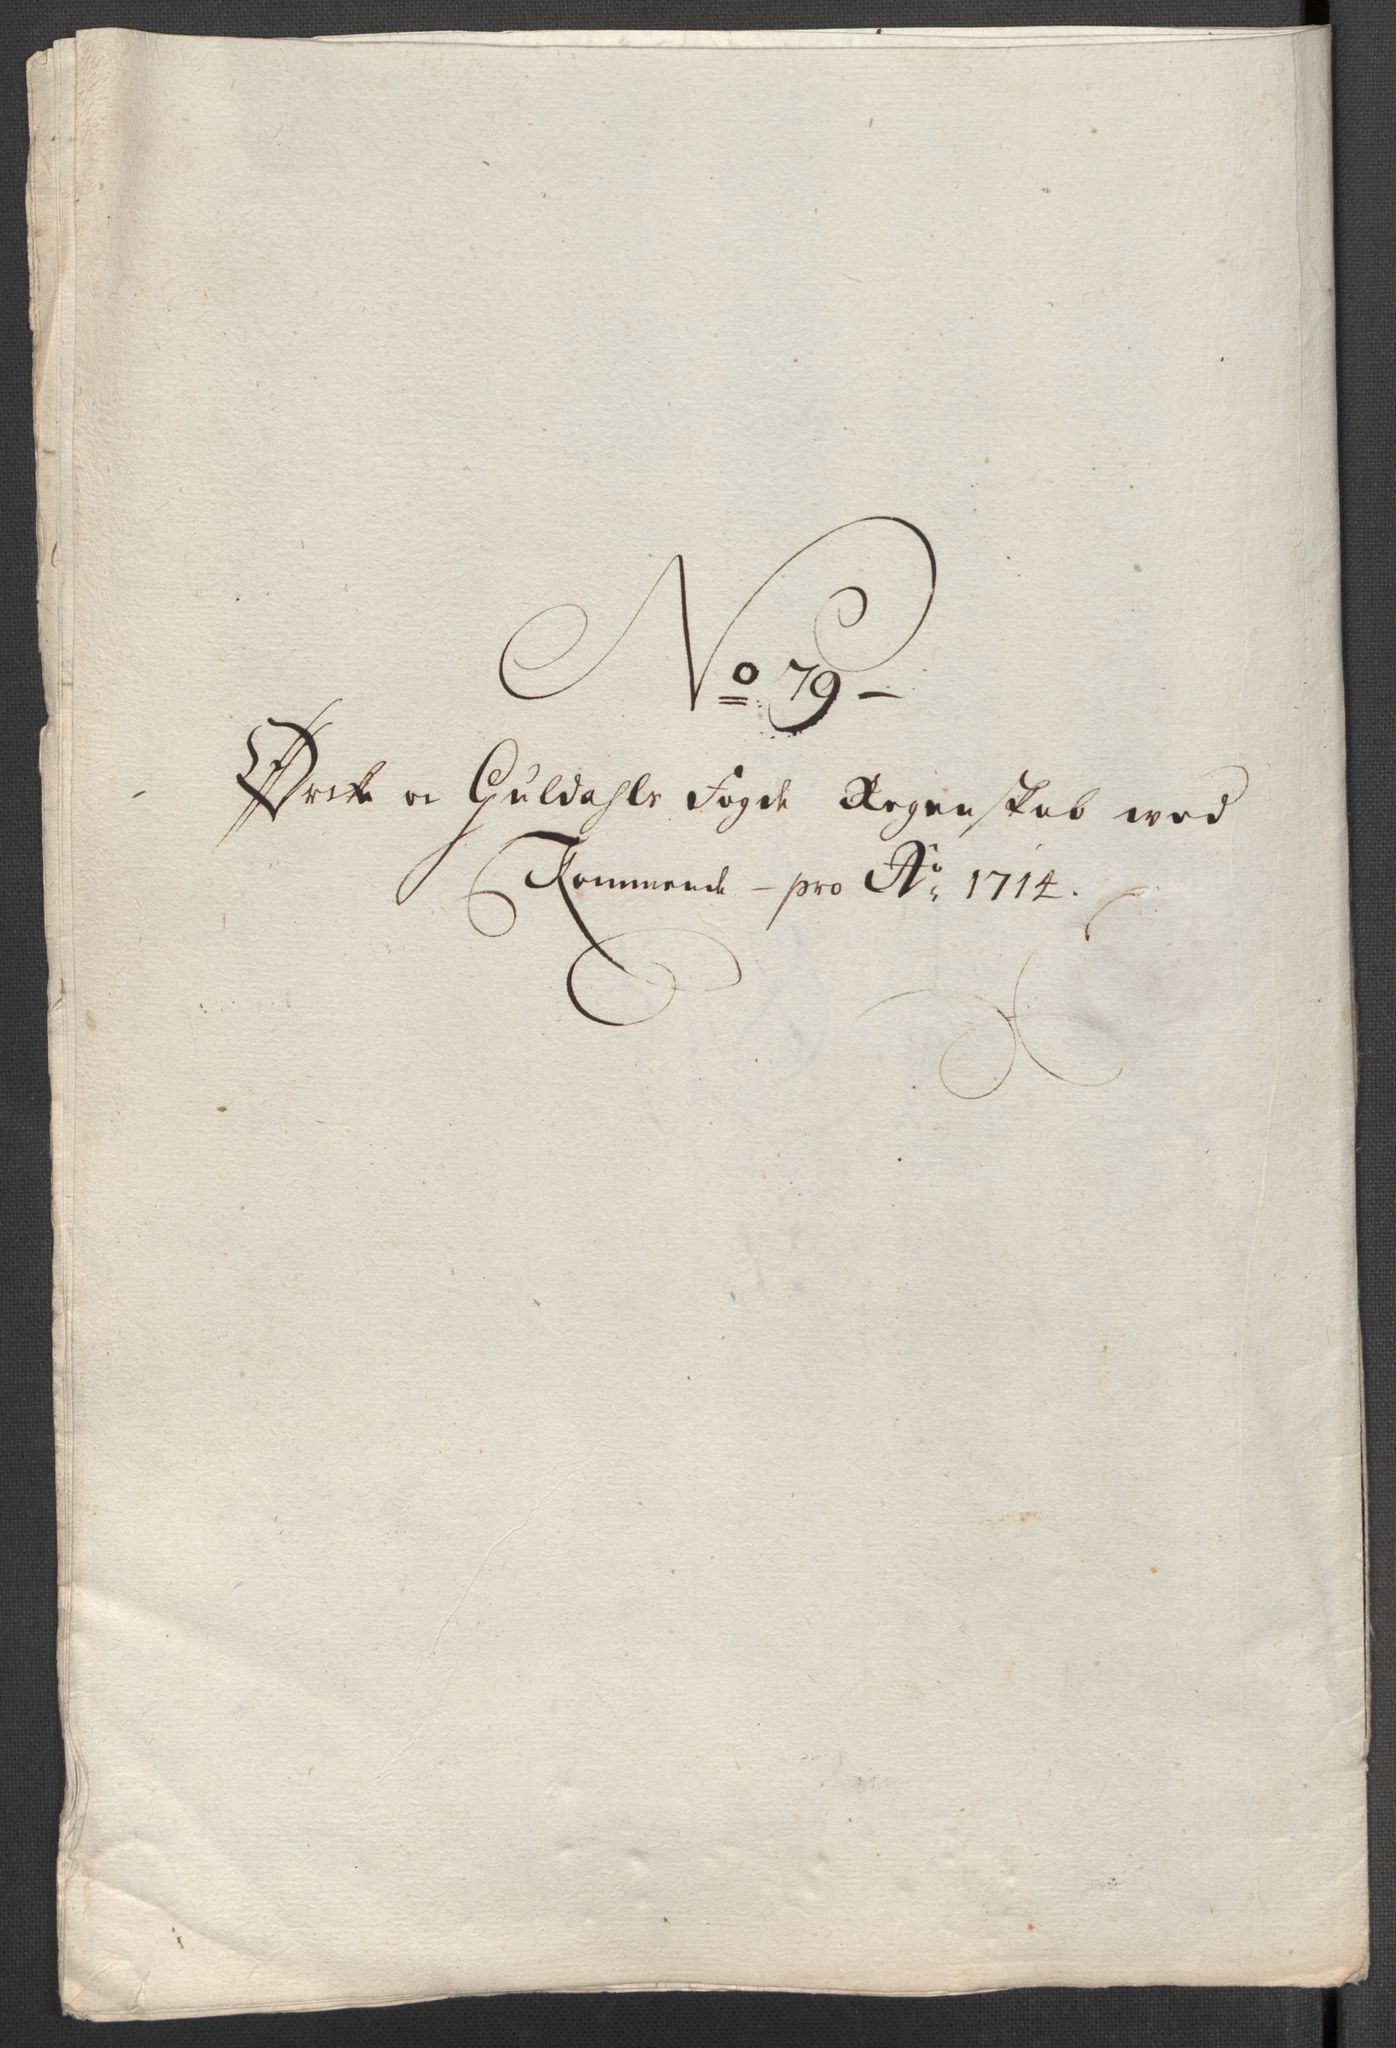 No 79 –
Ørke oc Guldahls Fogde Regenskab wed
Kommende – pro Ao, 1714.